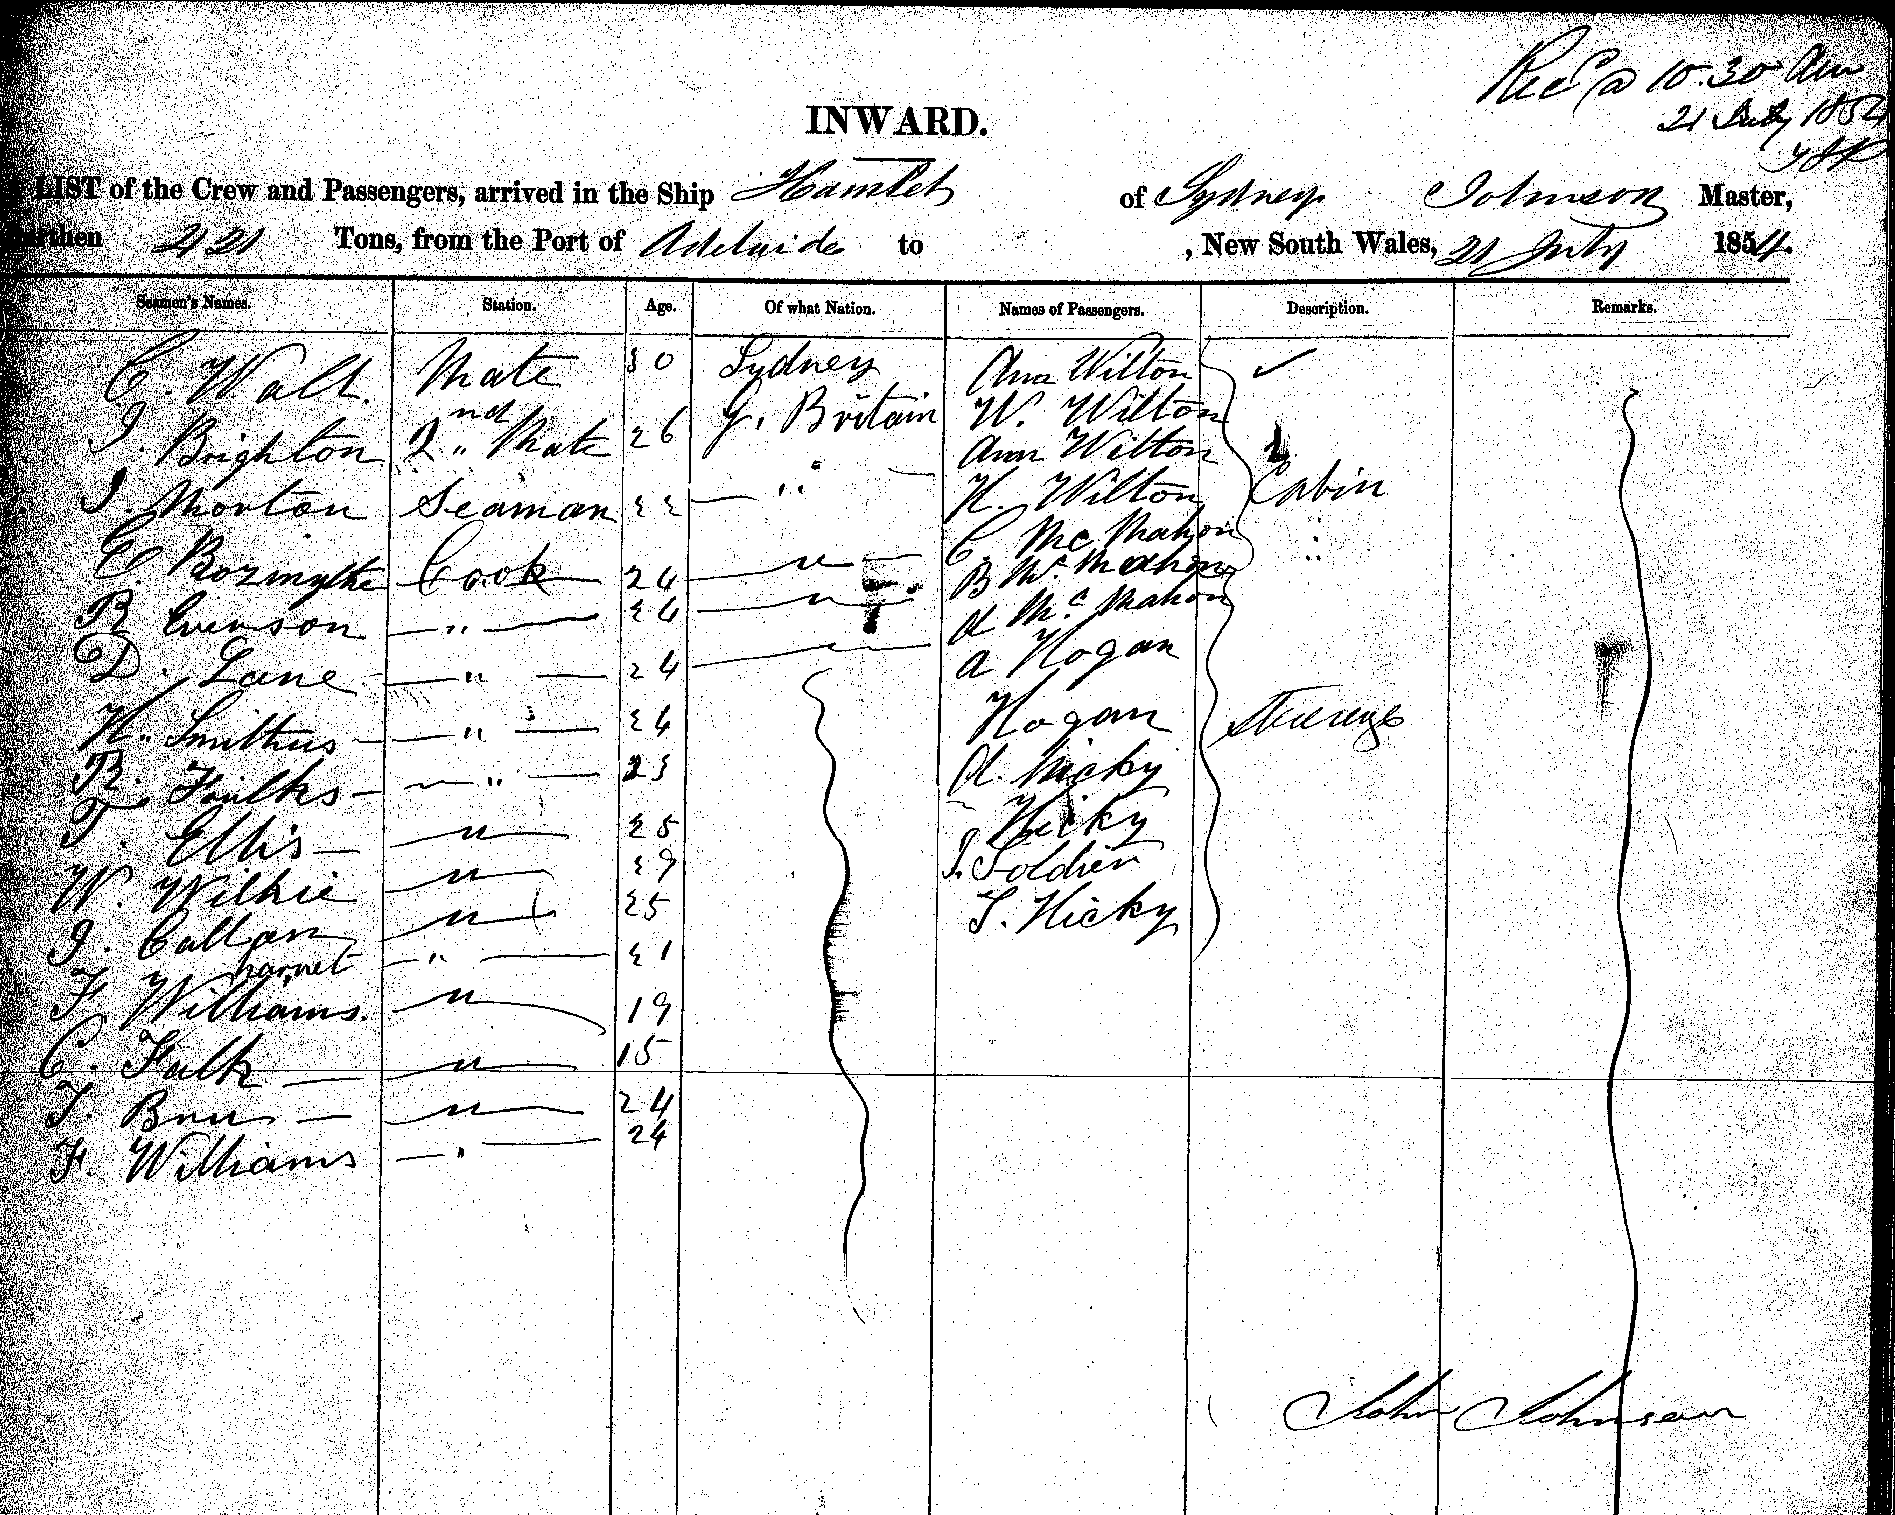 Recd @ 10.30 Am
21 July 1854
INWARD.
LIST of the Crew and Passengers, arrived in the Ship Hamlet of Sydney Johnson Master,
Burthen 421 Tons, from the Port of Adelaide to , New South Wales, 21 July 1854.
Seamen's Names. Station. Age. Of what Nation. Names of Passengers. Description. Remarks.
C. Walt. Mate 30 Sydney Ann Wilton ✓
J. Brighton 2nd Mate 26 G. Britain W. Wilton
Ann Wilton
J. Morton Seaman 22 " H. Wilton Cabin
C. McMahon "
E. Cook 24 " B McMahon
R Evenson " 26 " A McMahon
D. Lane " 24 " A Hogan
H. Smithus " 26 Hogan Steerage
R. Foulks " 23 A. Hicky
T. Ellis " 25 Hicky
W. Wilkie " 29 J. Soldier
J. Callan " 25 S. Hicky
" 21
F. Williams. " 19
C. Falk " 15
T. " 24
F. Williams " 24
John Johnson